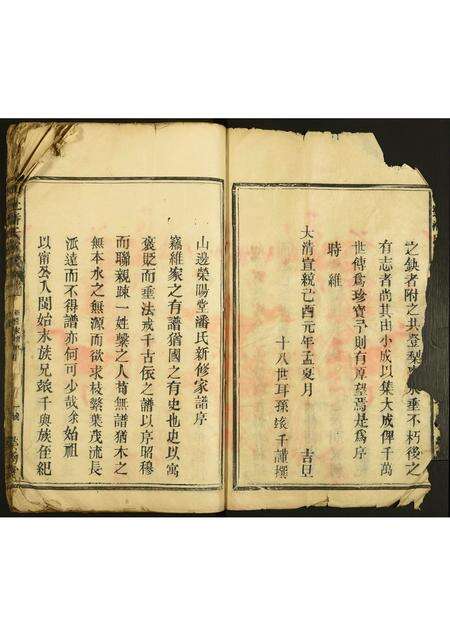 之缺者附之共登梨
永垂不朽後之
有志者尚其由小成以集大成俾千萬
世傳為珍寶予則有厚望焉是為序
時維
大清宣統己酉元年孟夏月 吉旦
十八世耳孫 千謹撰
山邊榮陽堂潘氏新修家譜序
竊維家之有譜猶國之有史也史以寓
褒貶而垂法戒千古依之譜以序昭穆
而聯親踈一姓繫之人苟無譜猶木之
無本水之無源而欲求枝繁葉茂流長
派遠而不得譜亦何可少哉余始祖
以甯公入閩始末族兄 千與族侄紀